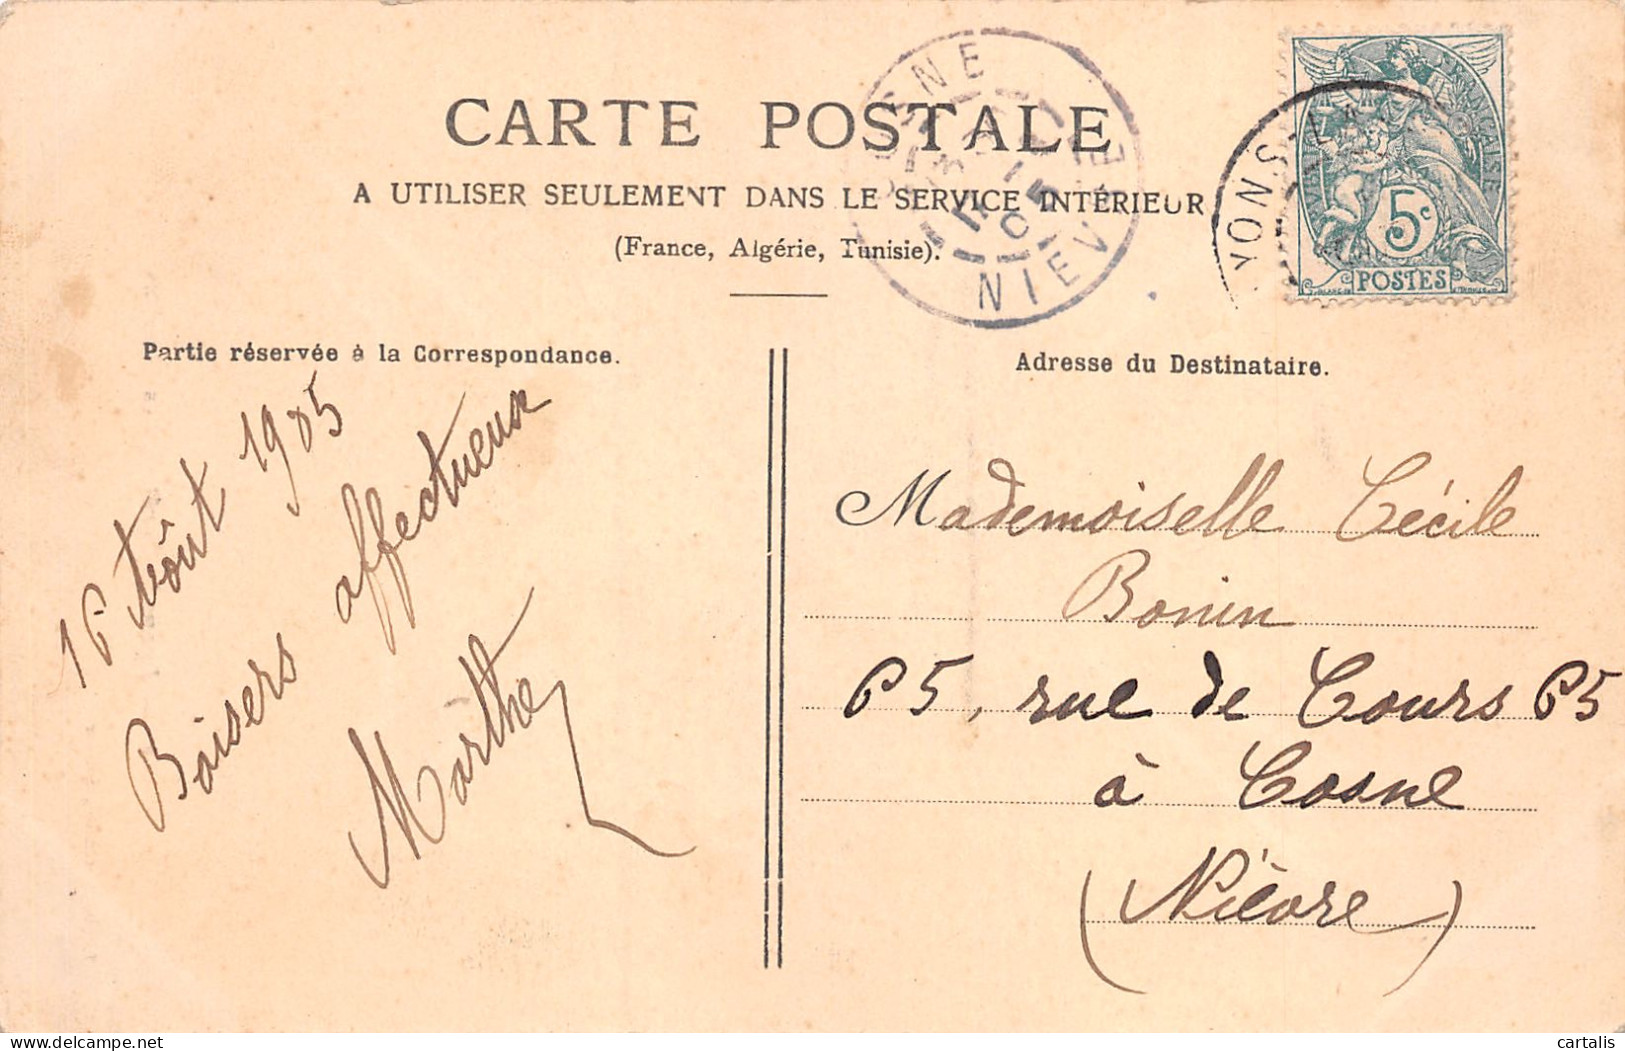 CARTE POSTALE
A UTILISER SEULEMENT DANS LE SERVICE INTÉRIEUR
(France, Algérie, Tunisie).
COSNE
NIEVRE
FRANÇAISE
5c
POSTES
Partie réservée à la Correspondance.
16 Aôut 1905
Baisers affectueux
Marthe
Adresse du Destinataire.
Mademoiselle Cécile
Bonin
65, rue de Cours 65
à Cosne
(Nièvre)
cartalis